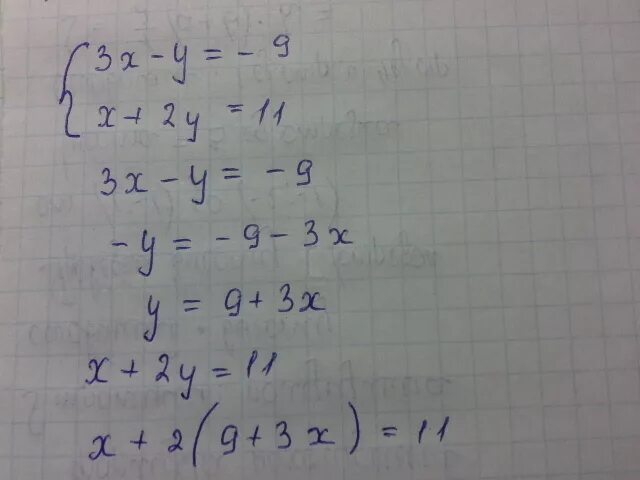 3x - y = - 9
x + 2y = 11
3x - y = - 9
- y = - 9 - 3x
y = 9 + 3x
x + 2y = 11
x + 2(9 + 3x) = 11